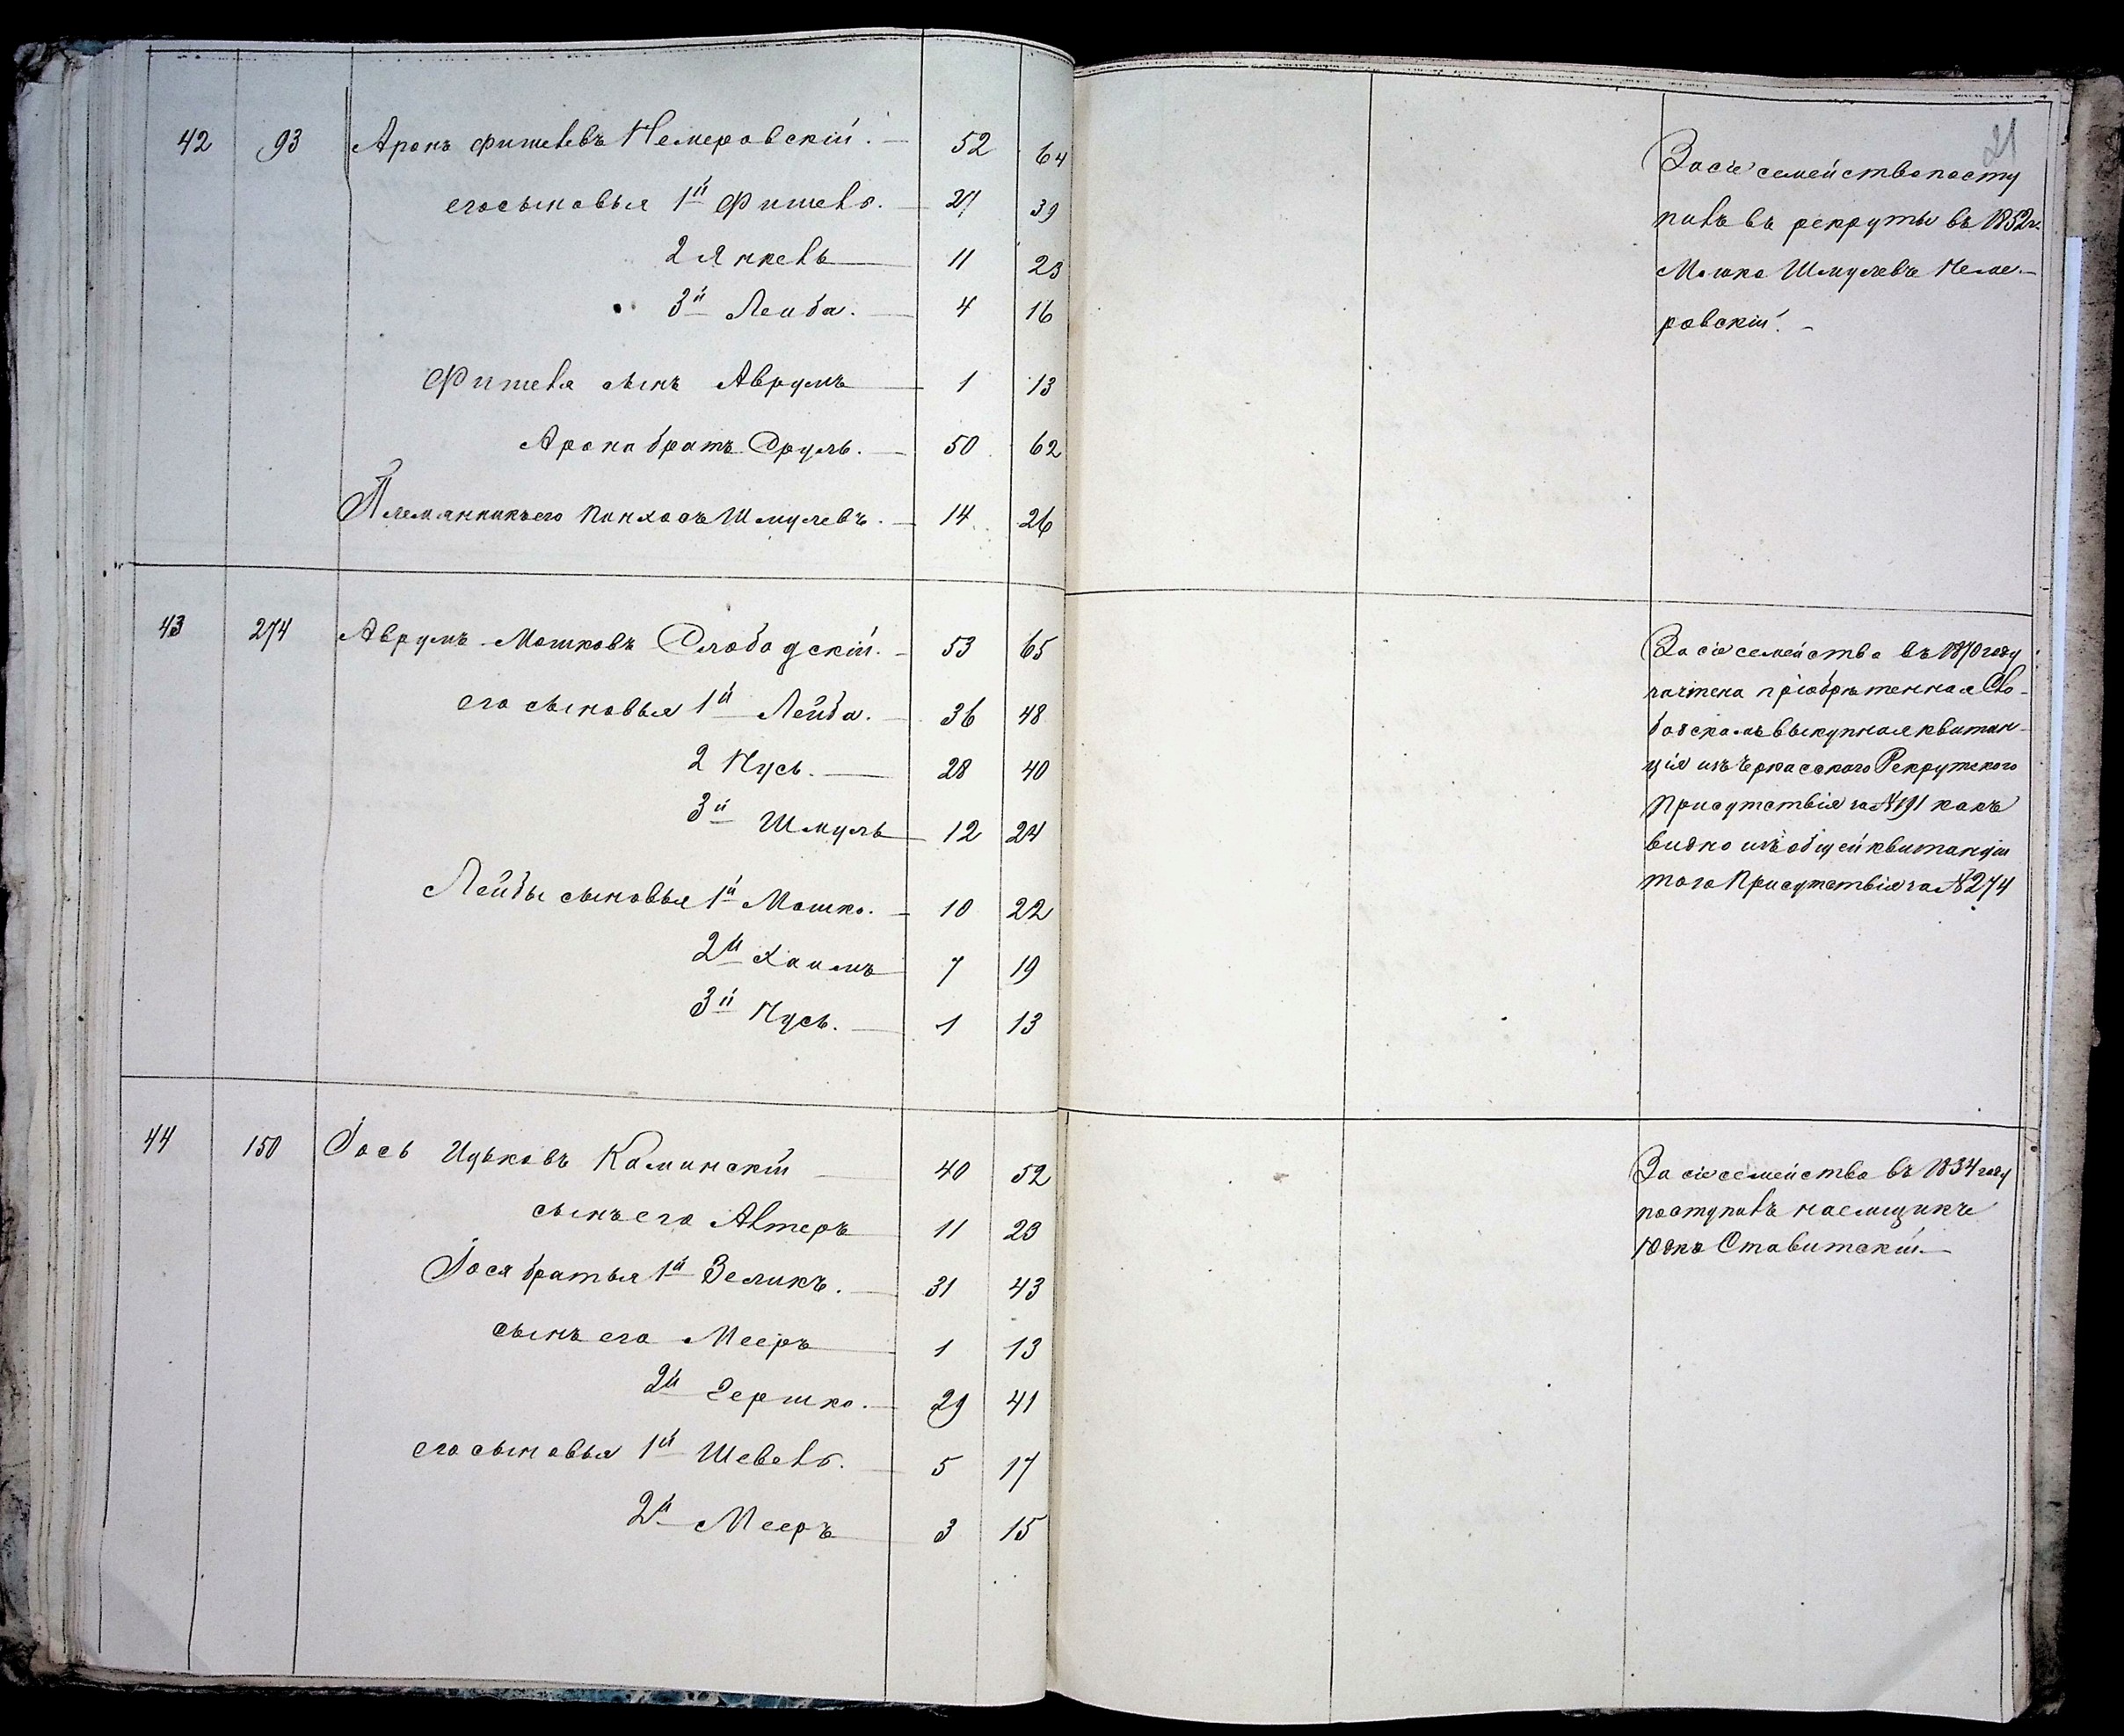 42 93 Аронъ Фишелевъ Немеровскій. — 52 64
его сыновья 1й Фишель. — 27 39
2 Янкель — 11 23
3й Лейба. — 4 16
Фишеля сынъ Аврумъ — 1 13
Арона братъ Сруль. — 50 62
Племянникъ его Пинхосъ Шмулевъ. — 14 26
43 274 Аврумъ Мошковъ Слободскій. — 53 65
его сыновья 1й Лейба. — 36 48
2 Нусь. — 28 40
3й Шмуль — 12 24
Лейбы сыновья 1й Мошко. — 10 22
2й Хаимъ 7 19
3й Нусь. — 1 13
44 150 Іось Ицьковъ Каминскій — 40 52
сынъ его Альтеръ 11 23
Іося братья 1й Зеликъ. — 31 43
сынъ его Мееръ — 1 13
2й Гершко. — 29 41
его сыновья 1й Шевель. — 5 17
2й Мееръ — 3 15
21
За сіе семейство посту
пилъ въ рекруты въ 1852 г.
Мошко Шмулевъ Неме-
ровскій. —
За сіе семейство въ 1870 году
зачтена пріобрѣтенная Сло-
бодскимъ выкупная квитан-
ція изъ Черкасского Рекрутского
Присутствія за № 191 какъ
видно изъ общей квитанціи
того Присутствія за № 274
За сіе семейство въ 1834 году
поступилъ наемщикъ
Юдко Ставитскій. —